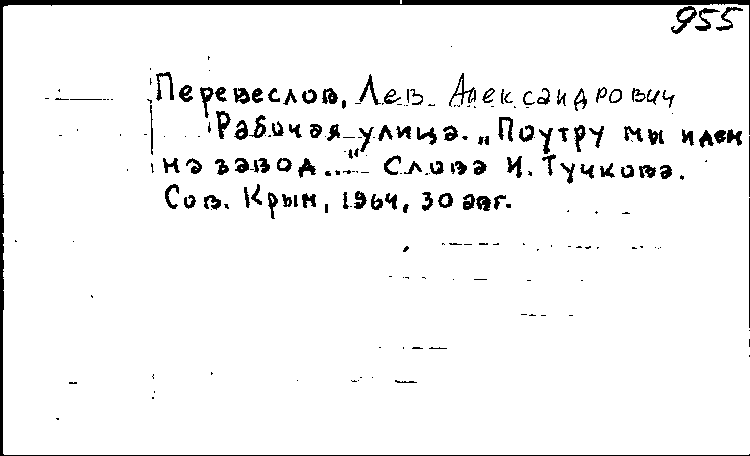 955
Перевеслов, Лев Александрович
Рабочая улица. „Поутру мы идем
на завод..." Слова И. Тучкова.
Сов. Крым, 1964, 30 авг.